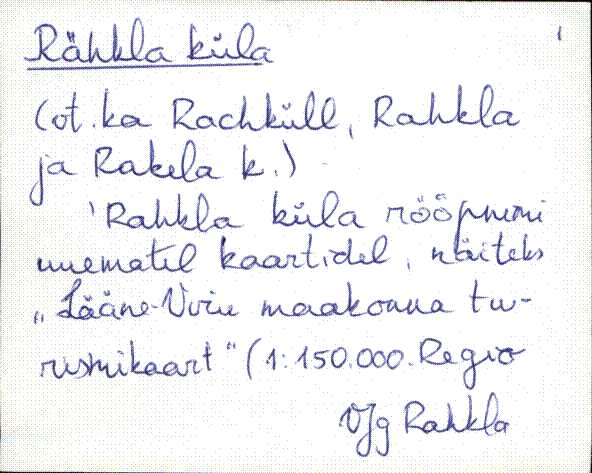 Rähkla küla 1
(ot. ka Rachküll, Rahkla
ja Rakela k.)
'Rahkla küla rööpnimi
uuematel kaartidel, näiteks
„Lääne-Viru maakonna tu-
rismikaart" (1:150.000. Regio
VJg Rahkla